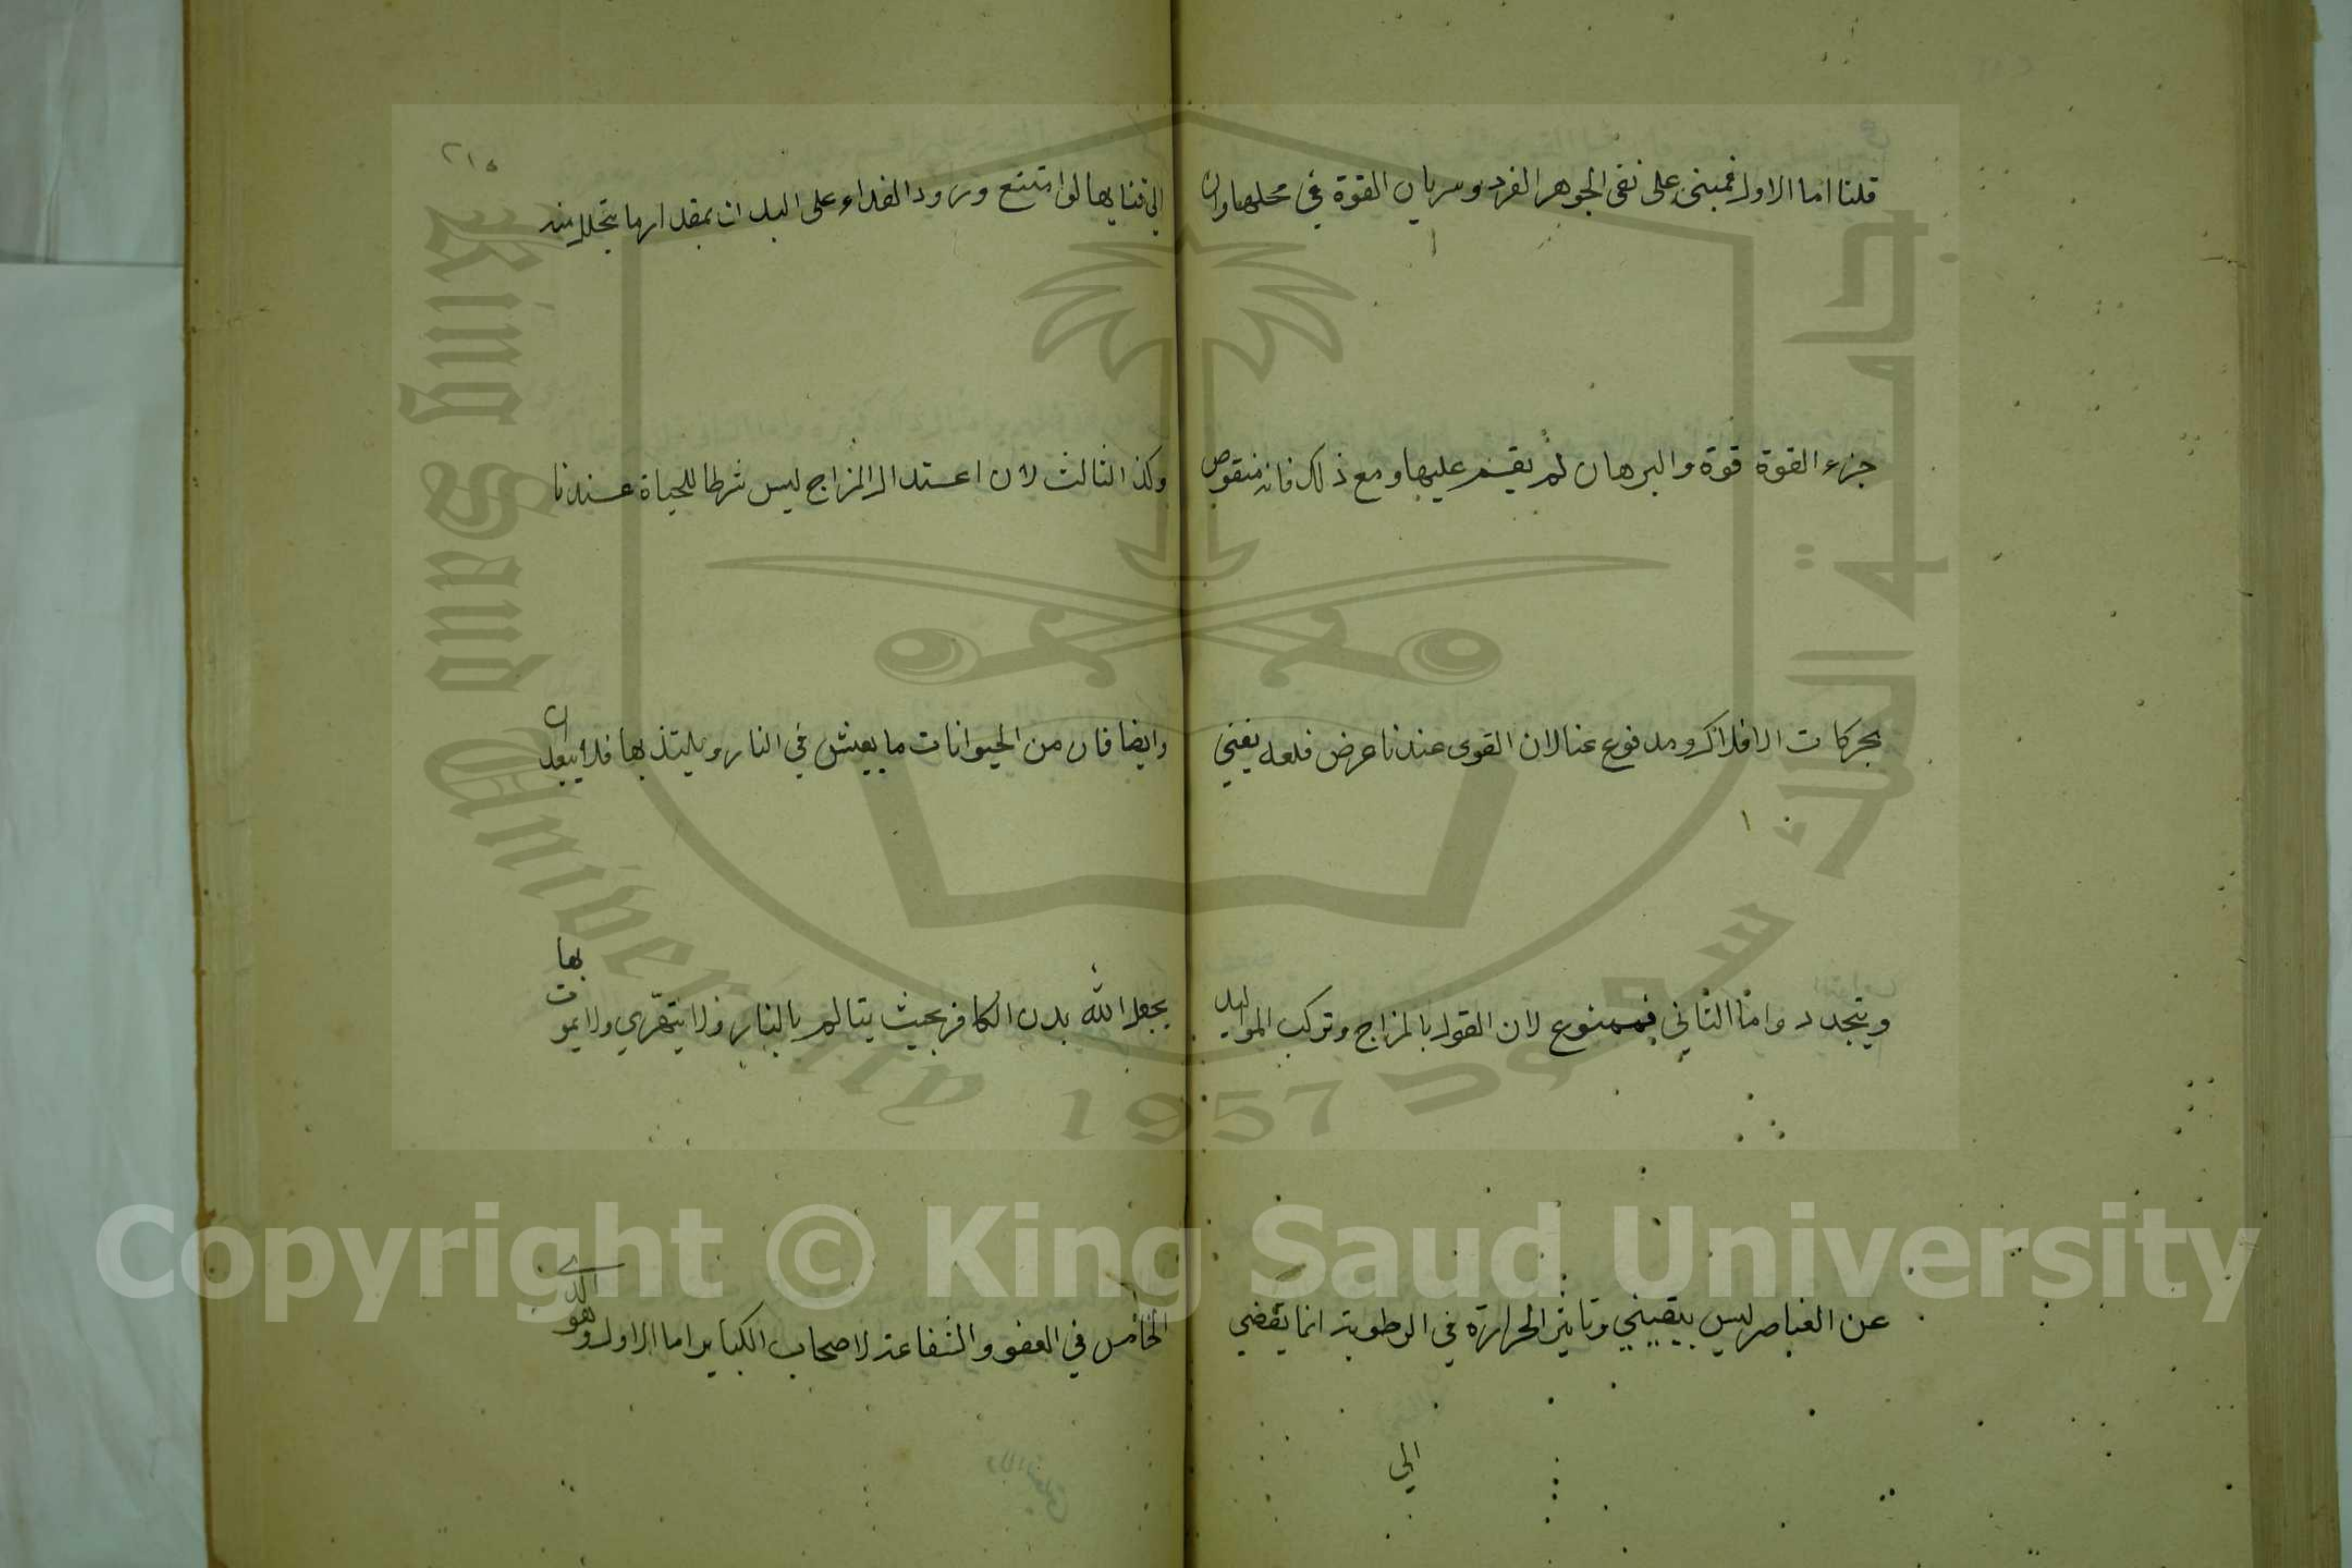 قلنا اما الاول فمبني على نفي الجوهر الفرد وسريان القوة في محلها وان
جزء القوة قوة والبرهان لم يقم عليها ومع ذلك فانه منقوص
بحركات الافلاك ومدفوع عنا لان القوى عندنا عرض فلعله يفني
ويتجدد واما الثاني فممنوع لان القول بالمزاج وتركب المواليد
عن العناصر ليس بيقيني وتاثير الحرارة في الرطوبة انما يقضي
الي
٢١٥
الي فنايها لو امتنع ورود الغداء على البدن بمقدار ما يتحلل منه
وكذا الثالث لان اعتدال المزاج ليس شرطا للحياة عندنا
وايضا فان من الحيوانات ما يعيش في النار ويلتذ بها فلا يبعد ان
يجعل الله بدن الكافر بحيث يتالم بالنار ولا يتهري ولا يموت بها
الخامس في العفو والشفاعة لاصحاب الكباير اما الاول وهو الذي
King Saud University
جامعة الملك سعود
1957
Copyright © King Saud University